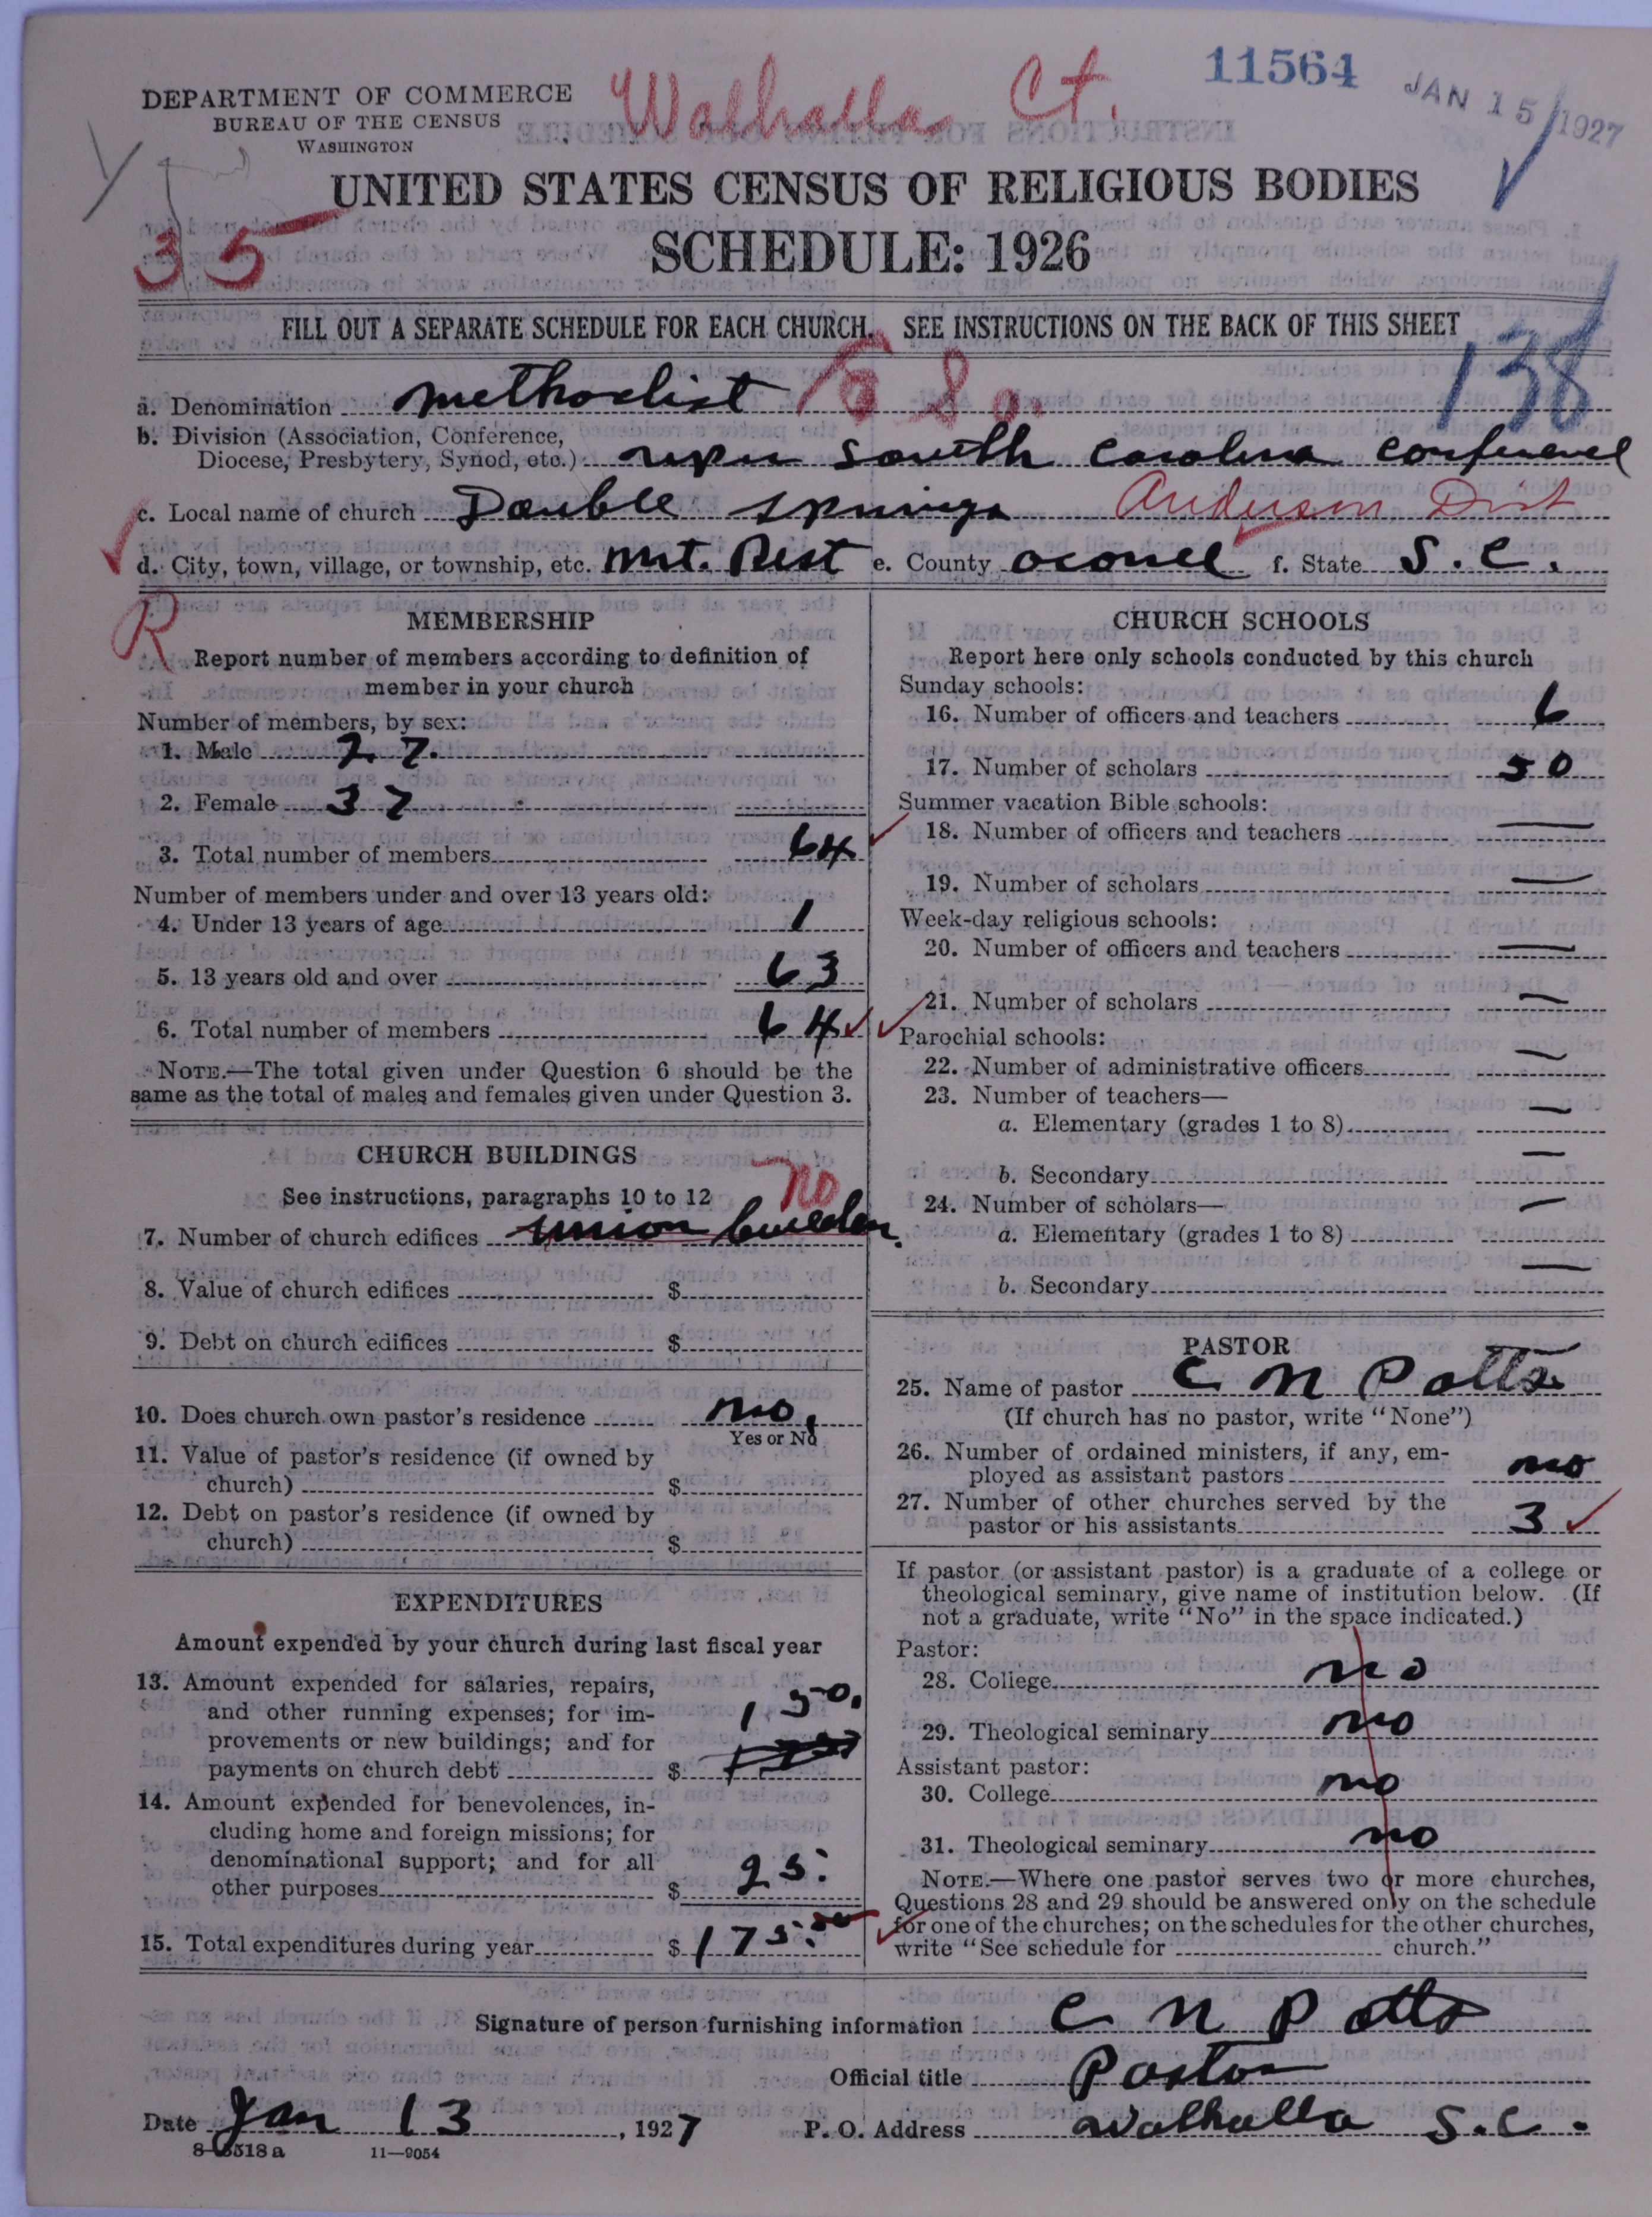 Walhalla Ct.
11564
JAN 15 1927
DEPARTMENT OF COMMERCE
BUREAU OF THE CENSUS
WASHINGTON
UNITED STATES CENSUS OF RELIGIOUS BODIES
35
SCHEDULE: 1926
FILL OUT A SEPARATE SCHEDULE FOR EACH CHURCH. SEE INSTRUCTIONS ON THE BACK OF THIS SHEET
138
a. Denomination methodist
b. Division (Association, Conference,
Diocese, Presbytery, Synod, etc.) South Carolina Conference
c. Local name of church Double Springs Anderson Dist
d. City, town, village, or township, etc. Mt. Rest e. County Oconee f. State S. C.
R
MEMBERSHIP
Report number of members according to definition of
member in your church
Number of members, by sex:
1. Male 27.
2. Female 37
3. Total number of members 64
Number of members under and over 13 years old:
4. Under 13 years of age 1
5. 13 years old and over 63
6. Total number of members 64
NOTE.—The total given under Question 6 should be the
same as the total of males and females given under Question 3.
CHURCH BUILDINGS
See instructions, paragraphs 10 to 12 no
7. Number of church edifices union
8. Value of church edifices $
9. Debt on church edifices $
10. Does church own pastor's residence no.
Yes or No
11. Value of pastor's residence (if owned by
church) $
12. Debt on pastor's residence (if owned by
church) $
EXPENDITURES
Amount expended by your church during last fiscal year
13. Amount expended for salaries, repairs,
and other running expenses; for im- 150.
provements or new buildings; and for
payments on church debt $
14. Amount expended for benevolences, in-
cluding home and foreign missions; for
denominational support; and for all
other purposes $ 25.
15. Total expenditures during year $ 175.00
CHURCH SCHOOLS
Report here only schools conducted by this church
Sunday schools:
16. Number of officers and teachers 6
17. Number of scholars 50
Summer vacation Bible schools:
18. Number of officers and teachers —
19. Number of scholars —
Week-day religious schools:
20. Number of officers and teachers —
21. Number of scholars —
Parochial schools:
22. Number of administrative officers —
23. Number of teachers—
a. Elementary (grades 1 to 8) —
b. Secondary —
24. Number of scholars—
a. Elementary (grades 1 to 8) —
b. Secondary —
PASTOR
25. Name of pastor C N Potts
(If church has no pastor, write "None")
26. Number of ordained ministers, if any, em-
ployed as assistant pastors no
27. Number of other churches served by the
pastor or his assistants 3
If pastor (or assistant pastor) is a graduate of a college or
theological seminary, give name of institution below. (If
not a graduate, write "No" in the space indicated.)
Pastor:
28. College no
29. Theological seminary no
Assistant pastor:
30. College no
31. Theological seminary no
NOTE.—Where one pastor serves two or more churches,
Questions 28 and 29 should be answered only on the schedule
for one of the churches; on the schedules for the other churches,
write "See schedule for church."
Signature of person furnishing information C N Potts
Official title Pastor
Date Jan 13, 1927 P. O. Address Walhalla S.C.
8-6518 a 11—9054